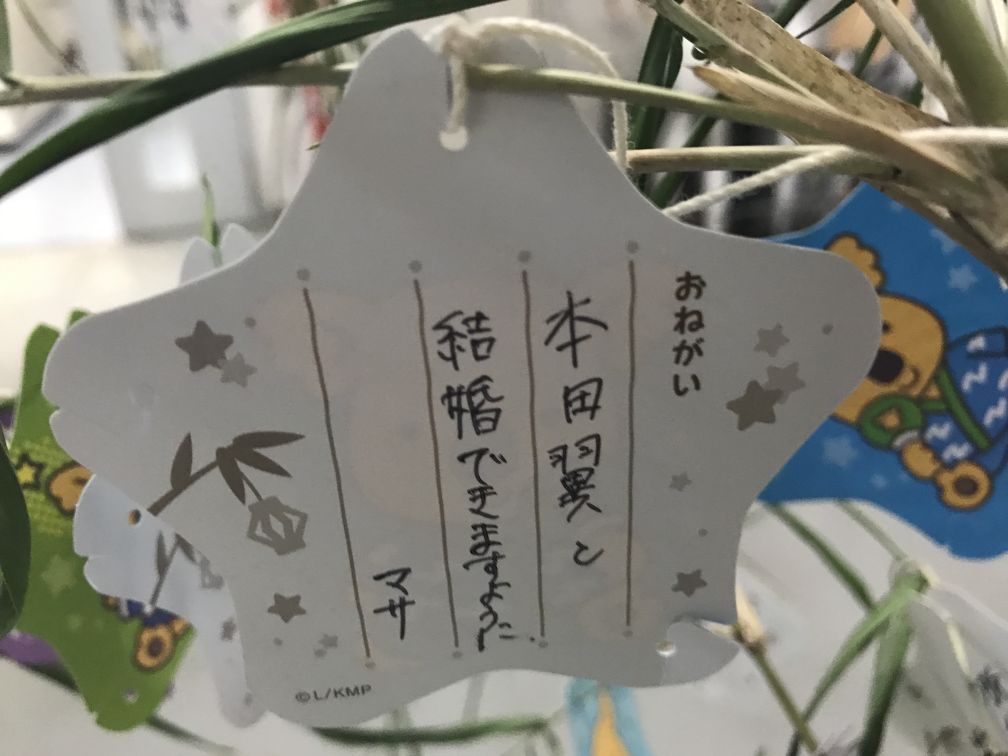 おねがい
本田翼と
結婚できますように
マサ
©L/KMP